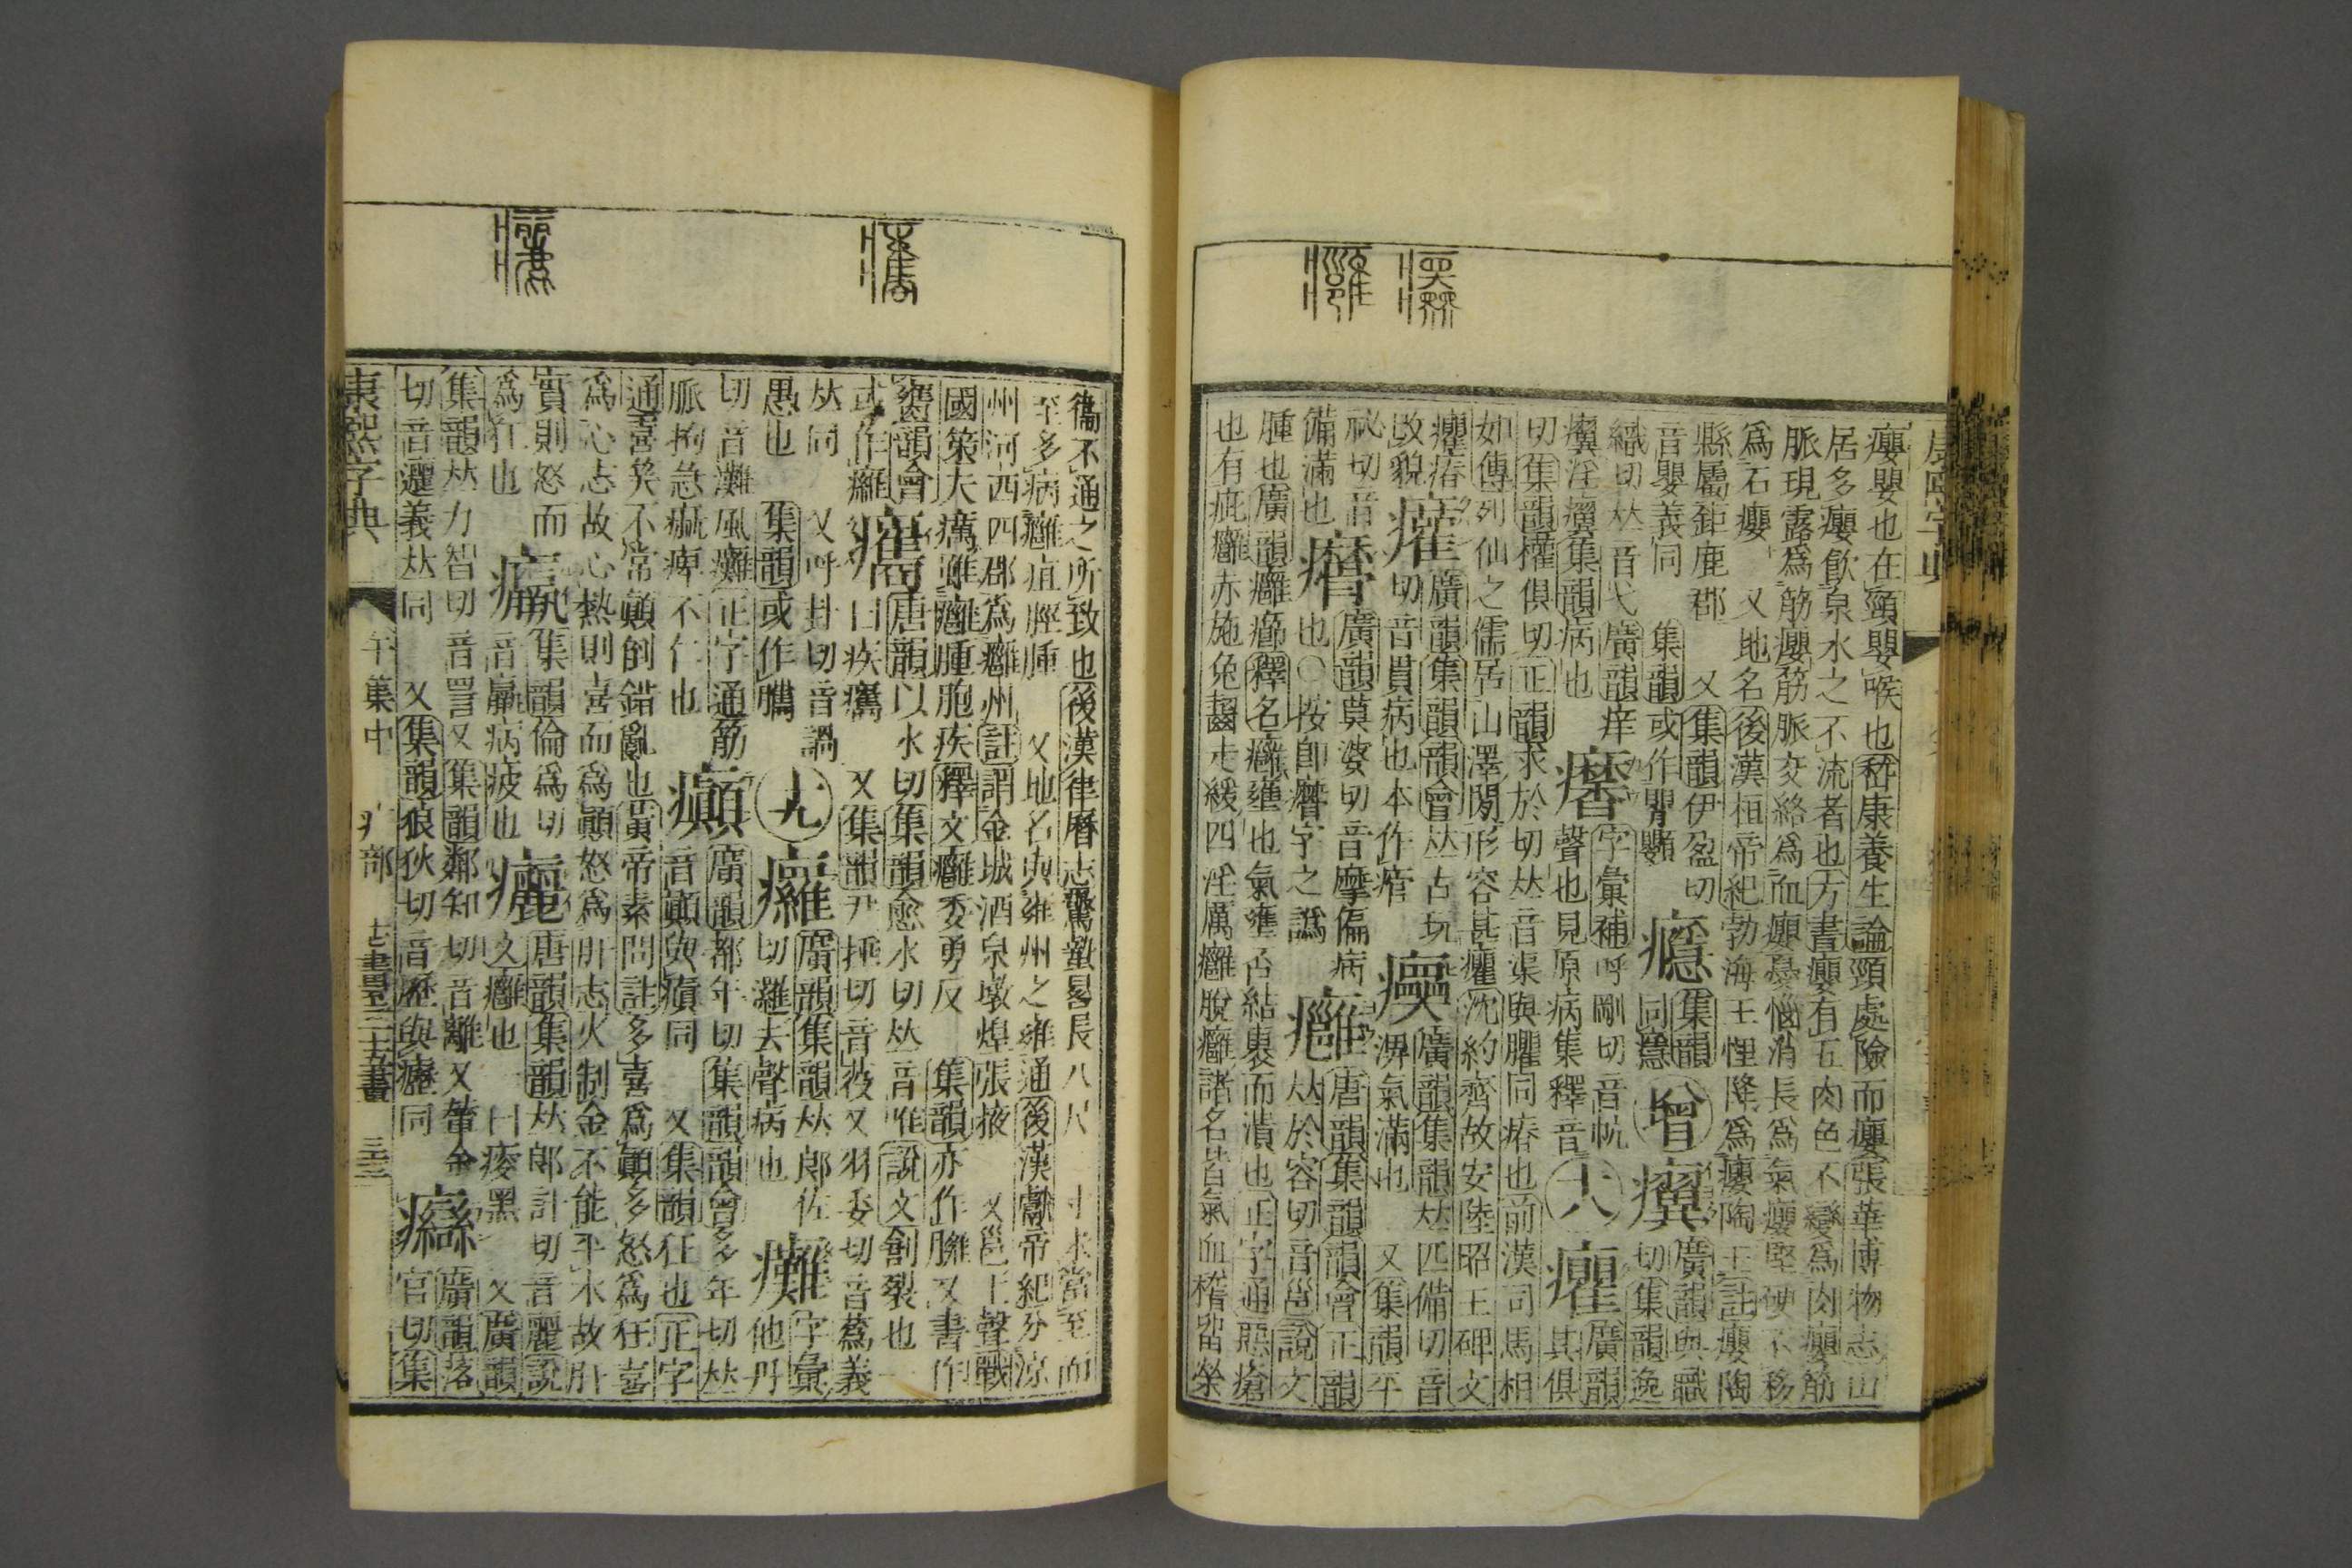 康熙字典
癭嬰也在頸嬰喉也嵇康養生論頸處險而癭張華博物志山
居多癭飮泉水之不流者也方書癭有五肉色不變爲肉癭筋
脈現露爲筋癭筋脈交絡爲血癭憂惱消長爲氣癭堅硬不移
爲石癭 又地名後漢桓帝紀勃海王悝降爲癭陶王註癭陶
縣屬鉅鹿郡 又集韻伊盈切
音嬰義同 集韻或作
癮 集韻
同㿼
增
㿣 廣韻與職
切集韻逸
織切𠀤音弋廣韻痒
㿣淫㿣集韻病也
字彙補呼剛切音㤍
聲也見原病集釋音
十八
癯 廣韻
其俱
切集韻權俱切正韻求於切𠀤音渠與臞同瘠也前漢司馬相
如傳列仙之儒居山澤閒形容甚癯沈約齊故安陸昭王碑文
癯瘠
改貌
廣韻集韻韻會𠀤古玩
切音貫病也本作痯
廣韻集韻𠀤匹備切音
淠氣滿也 又集韻平
祕切音
備滿也
廣韻莫婆切音摩偏病
也○按卽
字之譌
癰 唐韻集韻韻會正韻
𠀤於容切音邕說文
腫也廣韻癰癤釋名癰壅也氣壅否結裹而潰也正字通惡瘡
也有疵癰赤施兔齧走緩四淫厲癰脫癰諸名皆氣血稽留榮
衞不通之所致也後漢律曆志驚蟄晷長八尺 寸未當至而
至多病癰疽脛腫 又地名與雍州之雍通後漢獻帝紀分涼
州河西四郡爲癰州註謂金城酒泉墩煌張掖 又邕上聲戰
國策夫癘雖癰腫胞疾釋文癰委勇反 集韻亦作臃又書作
癕韻會
或作癰
唐韻以水切集韻愈水切𠀤音唯說文創裂也一
曰疾㿒 又集韻尹捶切音𦭮又羽委切音蔿義
𠀤同 又呼封切音
愚也 集韻或作
十九
癱 廣韻集韻𠀤郎佐
切灘去聲病也
癱 字彙
他丹
切音灘風癱正字通筋
脈拘急痲痺不仁也
癲 廣韻都年切集韻韻會多年切𠀤
音顚與瘨同 又集韻狂也正字
通喜笑不常顚倒錯亂也黃帝素問註多喜爲顚多怒爲狂喜
爲心志故心熱則喜而爲顚怒爲肝志火制金不能平木故肝
實則怒而
爲狂也
集韻倫爲切
音羸病疲也
唐韻集韻𠀤郎計切音麗說
文癰也 一曰瘦黑 又廣韻
集韻𠀤力智切音詈又集韻鄰知切音離又
切音邐義𠀤同 又集韻狼狄切音歷與瘰同
癵 廣韻落
官切集
康熙字典 午集中 疒部 三三